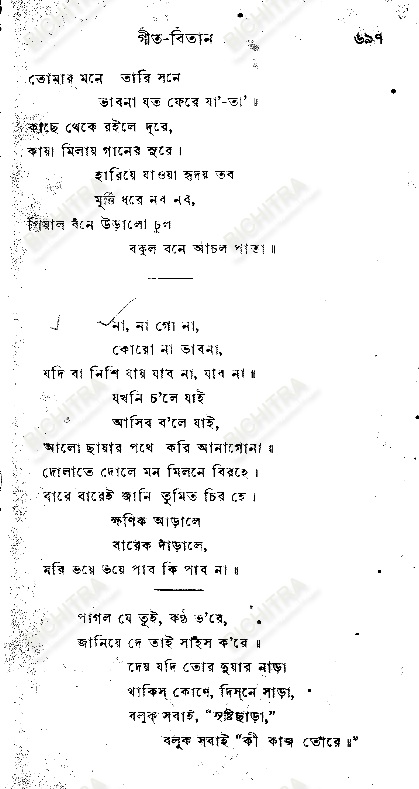 গীত-বিতান ৬৯৭
তোমার মনে তারি সনে
ভাবনা যত ফেরে যা'-তা' ॥
কাছে থেকে রইলে দূরে,
কায়া মিলায় গানের সুরে।
হারিয়ে যাওয়া হৃদয় তব
মূর্ত্তি ধরে নব নব,
পিয়াল বনে উড়ালো চুল
বকুল বনে আঁচল পাতা ॥
না, না গো না,
কোরো না ভাবনা,
যদি বা নিশি যায় যাব না, যাব না ॥
যখনি চ'লে যাই
আসিব ব'লে যাই,
আলো ছায়ার পথে করি আনাগোনা ॥
দোলাতে দোলে মন মিলনে বিরহে।
বারে বারেই জানি তুমিত চির হে।
ক্ষণিক আড়ালে
বারেক দাঁড়ালে,
মরি ভয়ে ভয়ে পাব কি পাব না ॥
পাগল যে তুই, কণ্ঠ ভ'রে,
জানিয়ে দে তাই সাহস ক'রে ॥
দেয় যদি তোর দুয়ার নাড়া
থাকিস্ কোণে, দিস্‌নে সাড়া,
বলুক্ সবাই, "সৃষ্টিছাড়া,"
বলুক সবাই "কী কাজ তোরে ॥"
BICHITRA